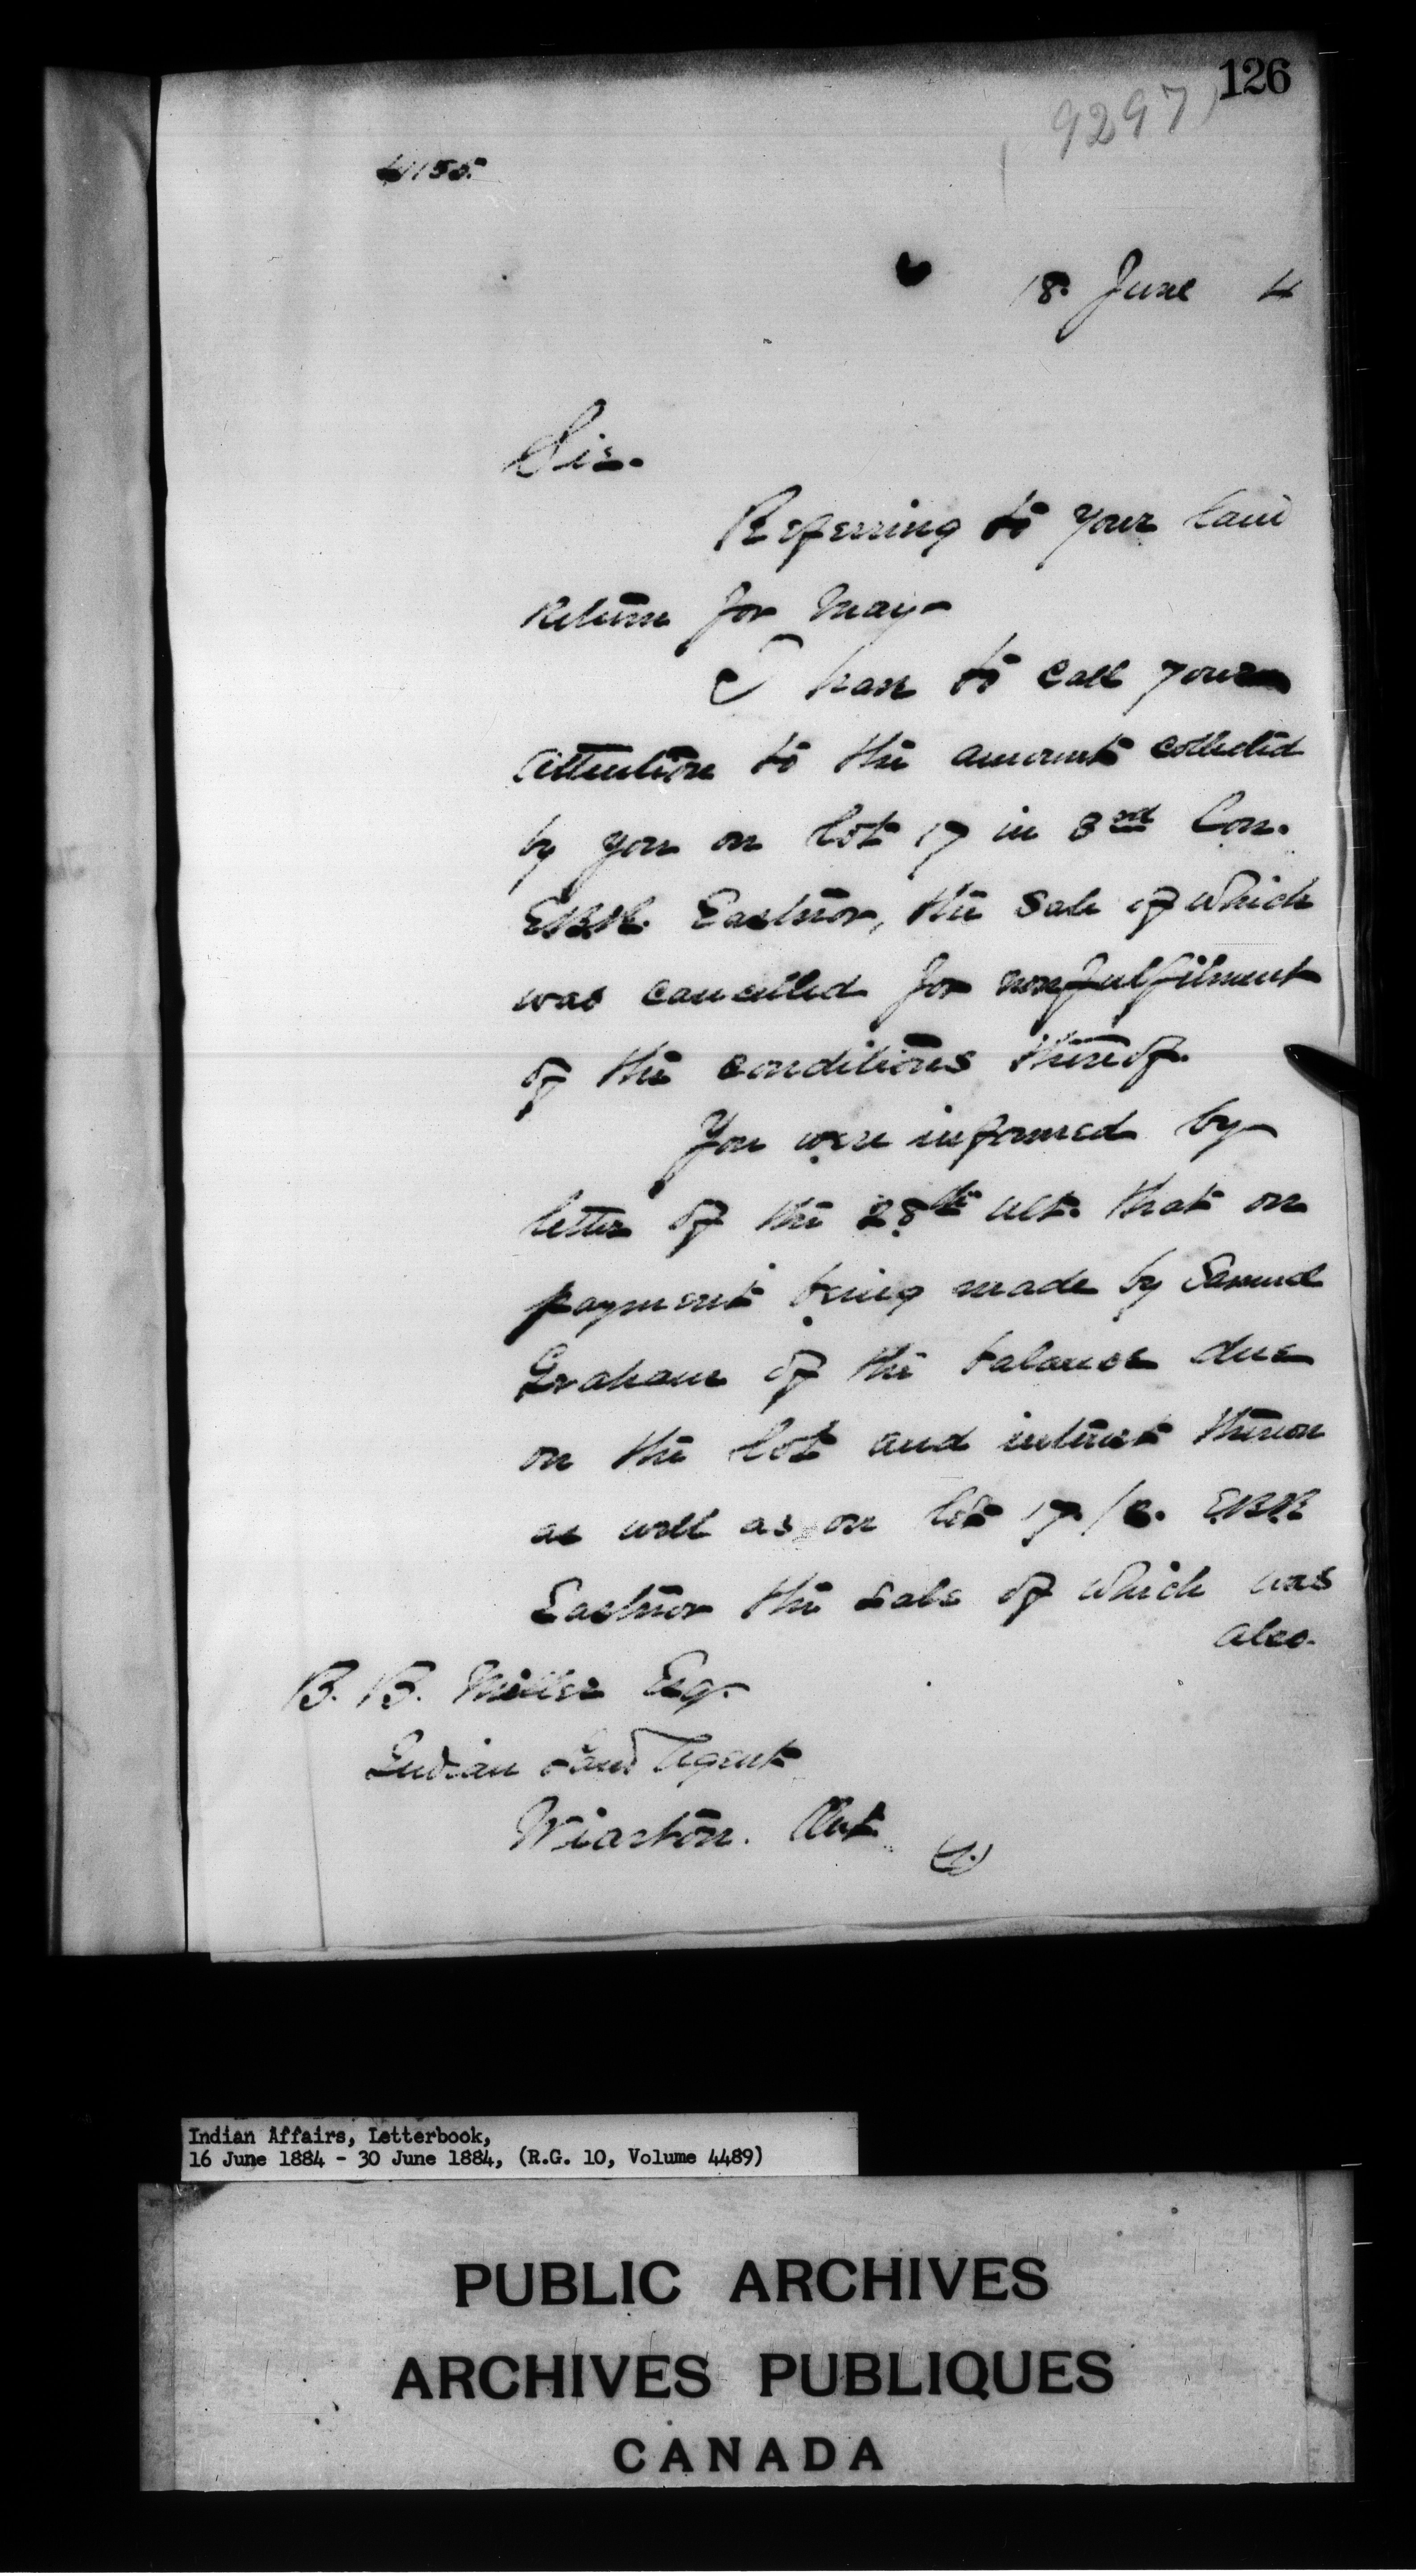 126
9297
4155.
18. June 4
Sir.
Referring to your land
return for May
I have to call your
attention to the amount collected
by you on Lot 17 in 3rd Con.
E.B.R. Eastnor, the sale of which
was cancelled for nonfulfilment
of the conditions thereof.
You were informed by
letter of the 28th ult. that on
payment being made by Samuel
Graham of the balance due
on the lot and interest thereon
as well as on lot 17. / E.B.R
Eastnor the sale of which was
also.
B. B. Miller Esq.
Indian Land Agent
Wiarton. Ont.
Indian Affairs, Letterbook,
16 June 1884 - 30 June 1884, (R.G. 10, Volume 4489)
PUBLIC ARCHIVES
ARCHIVES PUBLIQUES
CANADA